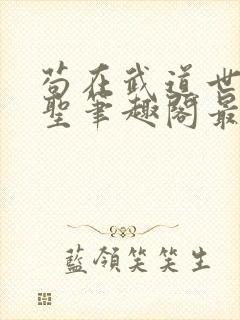 苟在武道世
聖筆趣閣最
藍領笑笑生